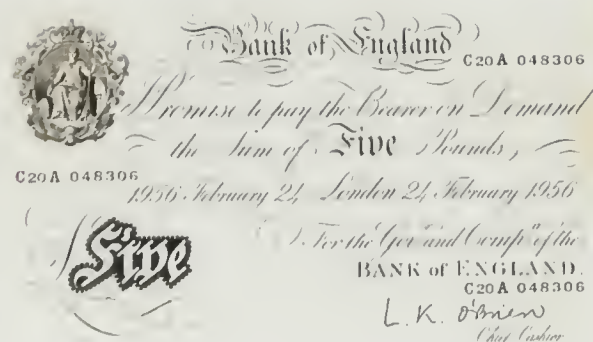 Bank of England
C20A 048306
I Promise to pay the Bearer on Demand
the Sum of Five Pounds,
C20A 048306
1956 February 24 London 24 February 1956
For the Govr. and Compa. of the
Five
BANK of ENGLAND.
C20A 048306
L. K. O'Brien
Chief Cashier